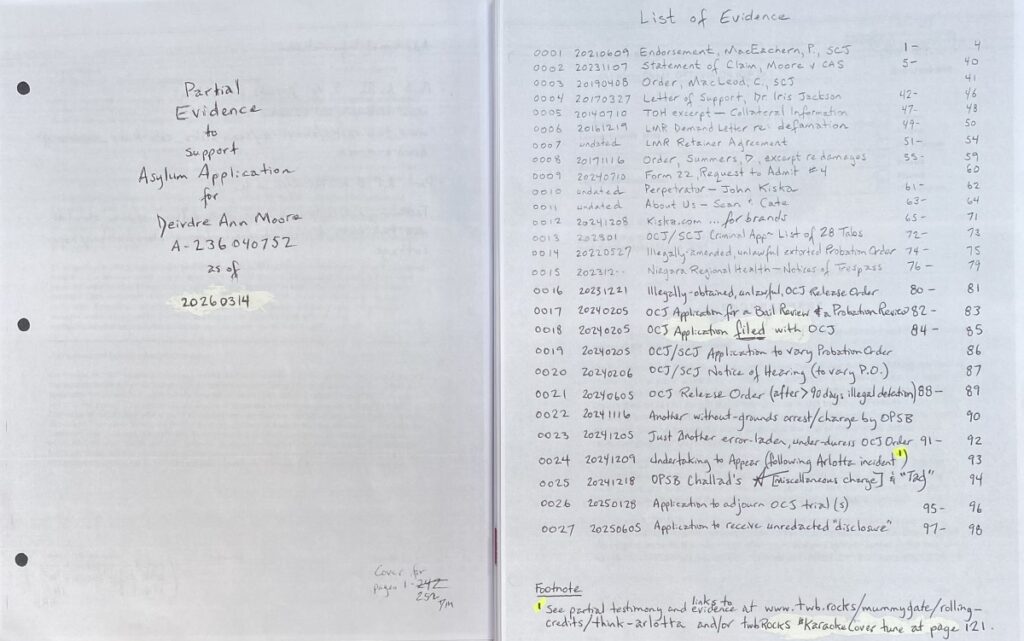 Partial
Evidence
to
support
Asylum Application
for
Deirdre Ann Moore
A-236040752
as of
20260314
Cover for
pages 1-242
252
List of Evidence
0001 20210609 Endorsement, MacEachern, P., SCJ 1- 4
0002 20231107 Statement of Claim, Moore v CAS 5- 40
0003 20190408 Order, MacLeod, C., SCJ 41
0004 20170327 Letter of Support, Dr Iris Jackson 42- 46
0005 20140710 TOH excerpt — Collateral Information 47- 48
0006 20161219 LMR Demand Letter re: defamation 49- 50
0007 undated LMR Retainer Agreement 51- 54
0008 20171116 Order, Summers, D, excerpt re damages 55- 59
0009 20240710 Form 22, Request to Admit #4 60
0010 undated Perpetrator — John Kiska 61- 62
0011 undated About Us — Sean & Cate 63- 64
0012 20241208 Kiska.com ... for brands 65- 71
0013 202301 OCJ/SCJ Criminal App~ List of 28 Tabs 72- 73
0014 20220527 Illegally-amended, unlawful extorted Probation Order 74- 75
0015 202312-- Niagara Regional Health — Notices of Trespass 76- 79
0016 20231221 Illegally-obtained, unlawful, OCJ Release Order 80- 81
0017 20240205 OCJ Application for a Bail Review & a Probation Review 82- 83
0018 20240205 OCJ Application filed with OCJ 84- 85
0019 20240205 OCJ/SCJ Application to vary Probation Order 86
0020 20240206 OCJ/SCJ Notice of Hearing (to vary P.O.) 87
0021 20240605 OCJ Release Order (after >90 days illegal detention) 88- 89
0022 20241116 Another without-grounds arrest/charge by OPSB 90
0023 20241205 Just Another error-laden, under-duress OCJ Order 91- 92
0024 20241209 Undertaking to Appear (following Arlotta incident 1) 93
0025 20241218 OPSB Challad's [miscellaneous charge] & "Tad" 94
0026 20250128 Application to adjourn OCJ trial(s) 95- 96
0027 20250605 Application to receive unredacted "disclosure" 97- 98
Footnote
1 See partial testimony and links to evidence at www.twb.rocks/mummygate/rolling-
credits/think-arlotta and/or twbRocks #KaraokeCover tune at page 121.